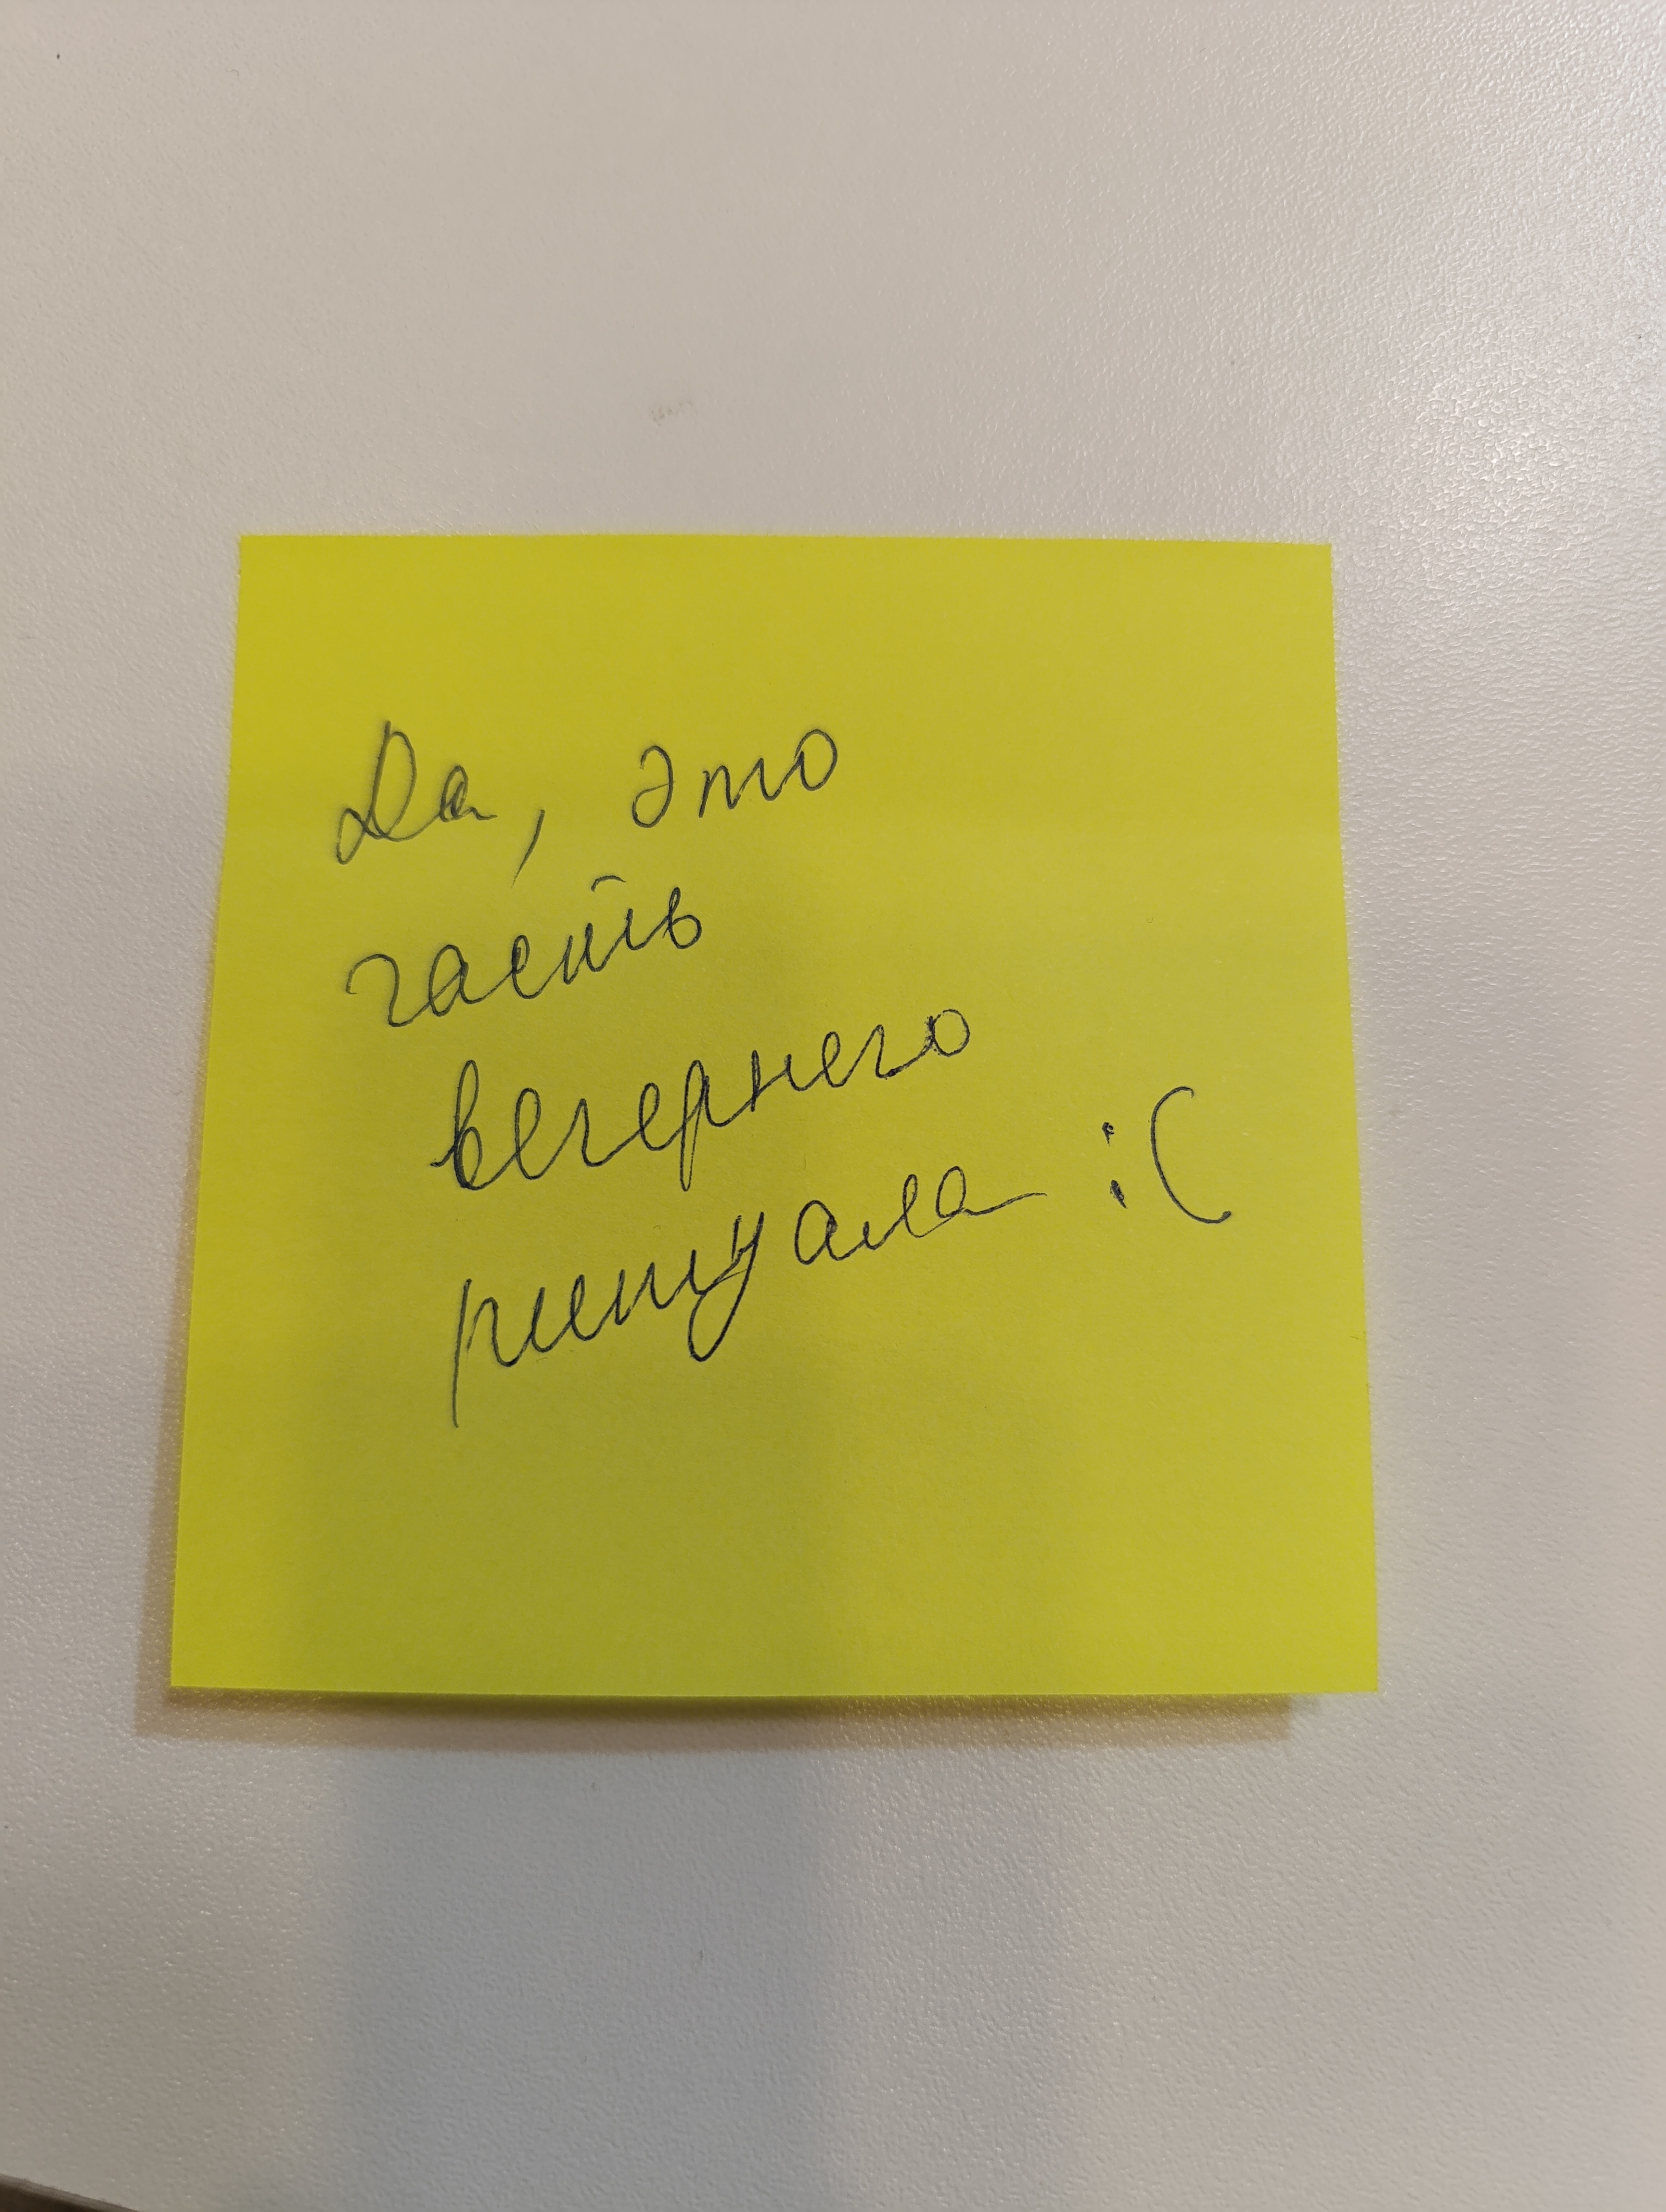 Да, это
часть
вечернего
ритуала :(